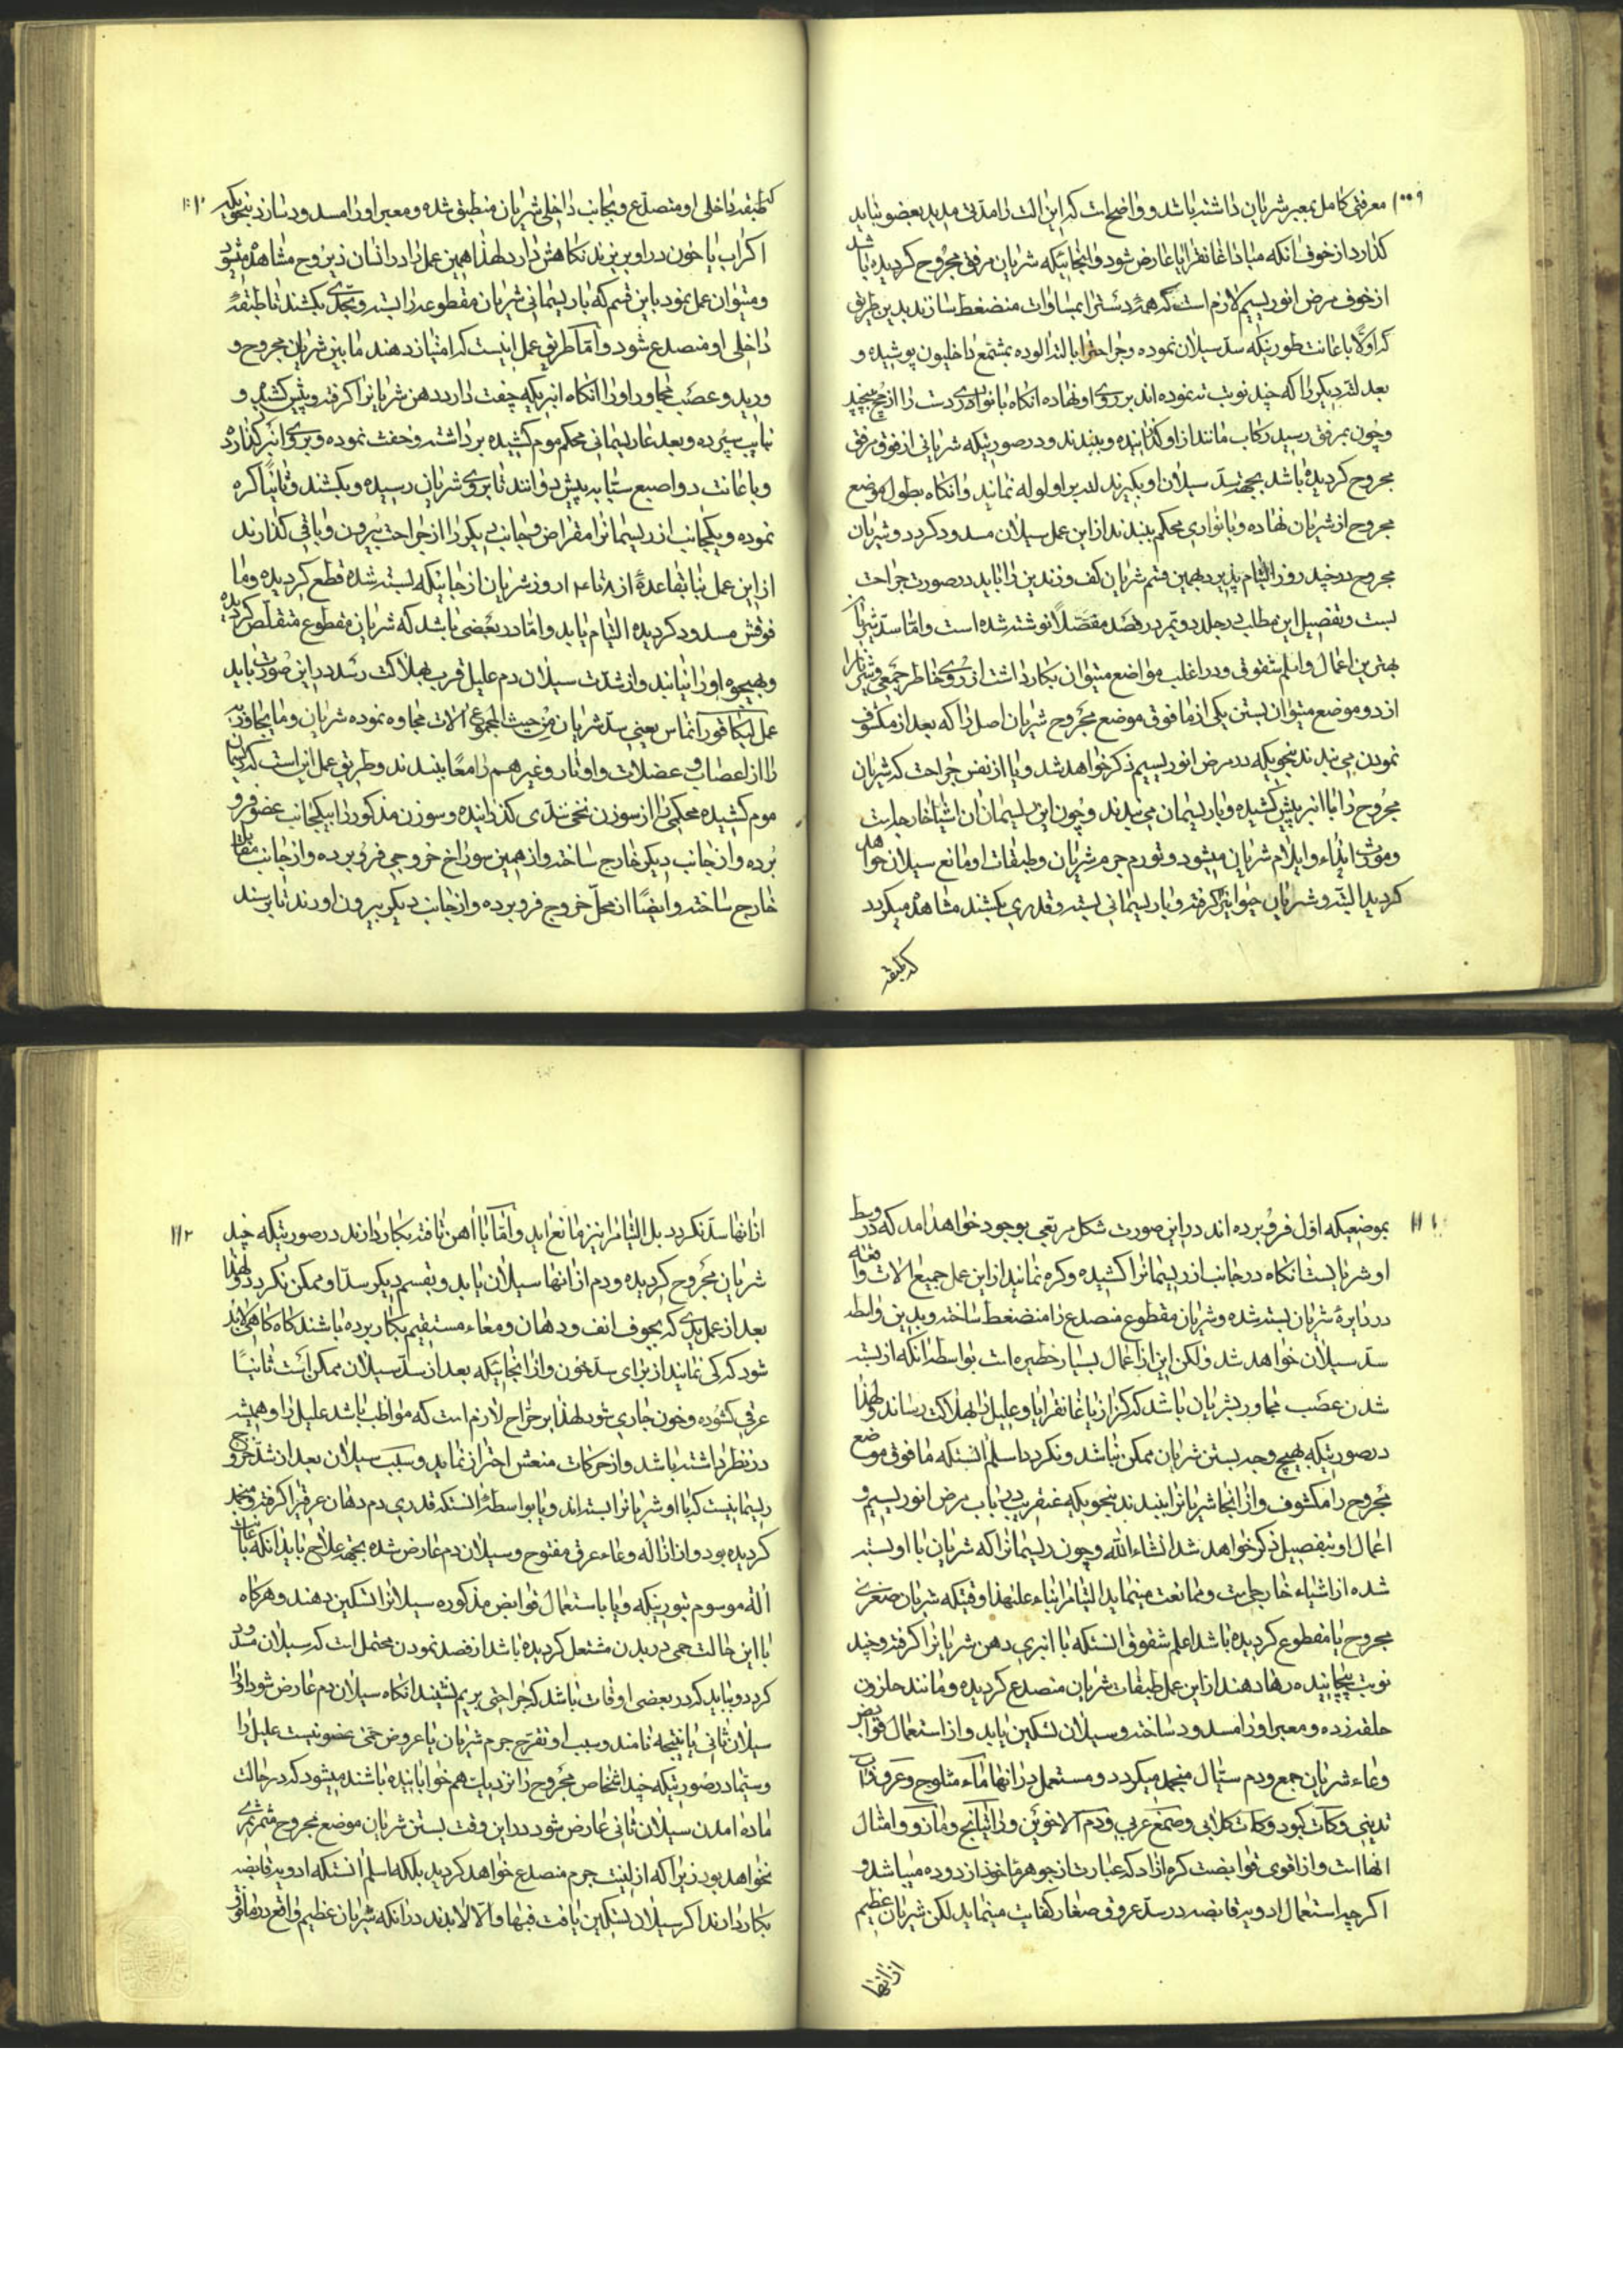 ۱۰۹ معرفتی کامل بمعبر شریان داشته باشد و واضحات که این الت را مدتی مدید بعضو نباید
کذارد از خوف انکه مبادا غانغرایا عارض شود و از انجائیکه شریان مرفق مجروح کردیده باشد
از خوف مرض انوریسیم لازم است که همهٔ دست را بمساوات منضغط سازند بدین طریق
که اولا باعانت طورنیکه سد سیلان نموده و جراحت را با لته الوده بمشمع داخلیون پوشیده و
بعد لته دیکر را که چند نوبت ته نموده اند بر روی او نهاده انکاه با نواری دست را از مچ پیچید
و چون بمرفق رسید رکاب مانند از او کذرانیده و ببندند و در صورتیکه شریانی از فوق مرفق
مجروح کردیده باشد بجهة سد سیلان او بکیرند لته بر او لوله نمایند و انکاه بطول موضع
مجروح از شریان نهاده و با نواری محکم ببندند از این عمل سیلان مسدود کردد و شریان
مجروح در چند روز التیام پذیرد بهمین قسم شریان کف و زندین را باید در صورت جراحت
بست و تفصیل این مطلب در جلد دویم در فصد مفصلا نوشته شده است و اما سد شریان
بهترین اعمال و اسلم شقوق و در اغلب مواضع میتوان بکار داشت از روی خاطر جمعی و شریانرا
از دو موضع میتوان بستن یکی از ما فوق موضع مجروح شریان اصل را که بعد از مکشوف
نمودن می بندند بنحویکه در مرض انوریسیم ذکر خواهد شد و یا از نفس جراحت که شریان
مجروح را با انبر پیش کشیده و با ریسمان می بندند و چون این ریسمان از اشیاء خارجیست
و مورث ایذاء و ایلام شریان میشود و تورم جرم شریان و طبقات او مانع سیلان خواهد
کردید البته و شریان حیوانیرا کرفته و با ریسمانی بسته و قدری بکشند مشاهده میکردد
که طبقه
۱۱۰ که طبقه داخلی او منصدع و بجانب داخلی شریان منطبق شده و معبر او را مسدود سازد بنحویکه
اکر اب یا خون در او بریزند نکاهش دارد لهذا همین عمل را در انسان ذیروح مشاهده میشود
و میتوان عمل نمود باین قسم که با ریسمانی شریان مقطوعه را بسته و بحدی بکشند تا طبقهٔ
داخلی او منصدع شود و اما طریق عمل اینست که امتیاز دهند ما بین شریان مجروح و
ورید و عصب مجاور او را انکاه انبریکه چفت دارد دهن شریانرا کرفته و پیش کشند و
بنایب سپرده و بعد عا ریسمانی محکم موم کشیده برداشته و خفت نموده و بر روی انبر کذارده
و با عانت دو اصبع سبابه پیش دوانند تا بروی شریان رسیده و بکشند و ثانیا کره
نموده و یکجانب از ریسمانرا مقراض و جانب دیکر را از جراحت بیرون و باقی کذارند
از این عمل بنا بقاعدهٔ از ۸ تا ۱۴ روز شریان از جائیکه بسته شده قطع کردیده و ما
فوقش مسدود کردیده التیام یابد و اما در بعضی باشد که شریان مقطوع متقلص کردیده
و بهیچوجه او را نیابند و از شدت سیلان دم علیل قرب بهلاکت رسد در این صورت باید
عمل لیکاتور انماس یعنی سد شریان من حیث المجموع الات مجاوه نموده شریان و ما یجاورند
را از اعصاب و عضلات و اوتار و غیر هم را معا ببندند و طریق عمل این است که ریسمان
موم کشیده محکمی را از سوزن نخی بندی کذرانیده و سوزن مذکور را بیکجانب عضو فرو
برده و از جانب دیکر خارج ساخته و از همین سوراخ خروجی فرو برده و از جانب مقابل
خارج ساخته و ایضا از محل خروج فرو برده و از جانب دیکر بیرون اورند تا برسند
۱۱۱ بموضعیکه اول فرو برده اند در این صورت شکل مربعی بوجود خواهد امد که در وسط
او شریانست انکاه در جانب از ریسمانرا کشیده و کره نمایند از این عمل جمیع الات واقعه
در دایرهٔ شریان بسته شده و شریان مقطوع منصدع را منضغط ساخته و بدین واسطه
سد سیلان خواهد شد ولکن این از اعمال بسیار خطیره است بواسطهٔ انکه از بسته
شدن عصب مجاور بشریان باشد که کزاز یا غانغرایا و علیل را بهلاکت رساند و لهذا
در صورتیکه بهیچ وجه بستن شریان ممکن نباشد و نکردد اسلم انستکه ما فوق موضع
مجروح را مکشوف و از انجا شریانرا ببندند بنحویکه عنقریب در باب مرض انوریسیم و
اعمال او بتفصیل ذکر خواهد شد انشاء الله و چون ریسمانرا که شریان با او بسته
شده از اشیاء خارجیست و ممانعت مینماید التیامرا بناء علیهذا وقتیکه شریان صغری
مجروح یا مقطوع کردیده باشد اعلم شقوق انستکه با انبری دهن شریانرا کرفته و چند
نوبت پیچانیده رها دهند از این عمل طبقات شریان منصدع کردیده و مانند حلزون
حلقه زده و معبر او را مسدود ساخته و سیلان تسکین یابد و از استعمال قوابض
وعاء شریان جمع و دم سیال منجمد میکردد و مستعمل در انها ماء مثلوج و عرق شراب
تدینی و کات کبود و کات کلابی و صمغ عربی و دم الاخوین و راتیانج و مازو و امثال
انهاست و از اقوی قوابضست کره ازاد که عبارت از جوهر ماخوذ از دوده میباشد و
اکرچه استعمال ادویه قابضه در سد عروق صغار کفایت مینماید لکن شریان عظیم
از انها
۱۱۲ از انها سد نکردد بل التیامرا نیز مانع اید و اما با اهن تافته بکار دارند در صورتیکه چند
شریان مجروح کردیده و دم از انها سیلان یابد و بقسم دیکر سد او ممکن نکردد و لهذا
بعد از عمل یدی که بجوف انف و دهان و معاء مستقیم بکار برده باشند کاه کاهی لابد
شود که کی نمایند از برای سد خون و از انجائیکه بعد از سد سیلان ممکن است ثانیا
عرقی کشوده و خون جاری شود لهذا بر جراح لازم است که مواظب باشد علیل را و همیشه
در نظر داشته باشد و از حرکات منعش احتراز نماید و سبب سیلان بعد از شد خروج
ریسمانیست که با او شریانرا بسته اند و یا بواسطهٔ انستکه قدری دم دهان عرقرا کرفته و منجمد
کردیده بود و از ازاله وعاء عرق مفتوح و سیلان دم عارض شده بجهة علاج باید انکه باعانت
اله موسوم بتورنیکه و یا باستعمال قوابض مذکوره سیلانرا تسکین دهند و هرکاه
با این حالت حمی در بدن مشتعل کردیده باشد از فصد نمودن محتمل است که سیلان مسدود
کردد و بباید که در بعضی اوقات باشد که جراحتی بریم نشیند انکاه سیلان دم عارض شود او را
سیلان ثانی یا نتیجه نامند و سبب او تقرح جرم شریان یا عروض حمی عفونیست علیل را
و سیما در صورتیکه چند اشخاص مجروح را نزدیک هم خوابانیده باشند میشود که در حالت
ماده امدن سیلان ثانی عارض شود در این وقت بستن شریان موضع مجروح مثمر ثمری
نخواهد بود زیرا که از لینت جرم منصدع خواهد کردید بلکه اسلم انستکه ادویه قابضه
بکار دارند اکر سیلان تسکین یافت فبها و الا لابدند در انکه شریان عظیم واقع در مافوق